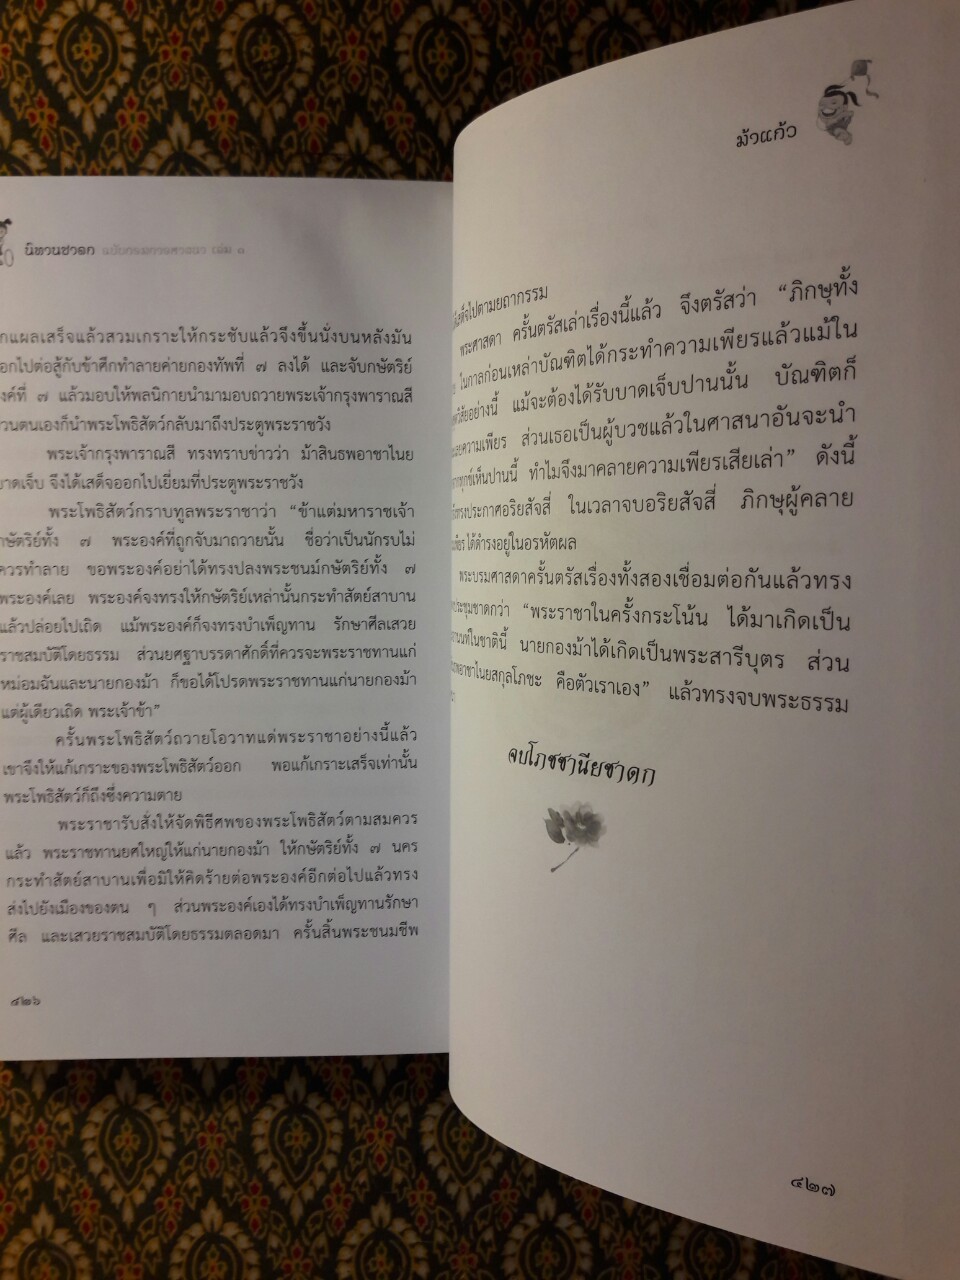 นิทานชาดก ฉบับกรมการศาสนา เล่ม ๑
แผลเสร็จแล้วสวมเกราะให้กระชับแล้วจึงขึ้นนั่งบนหลังมัน
ออกไปต่อสู้กับข้าศึกทำลายค่ายกองทัพที่ ๗ ลงได้ และจับกษัตริย์
องค์ที่ ๗ แล้วมอบให้พลนิกายนำมามอบถวายพระเจ้ากรุงพาราณสี
ส่วนตนเองก็นำพระโพธิสัตว์กลับมาถึงประตูพระราชวัง
พระเจ้ากรุงพาราณสี ทรงทราบข่าวว่า ม้าสินธพอาชาไนย
บาดเจ็บ จึงได้เสด็จออกไปเยี่ยมที่ประตูพระราชวัง
พระโพธิสัตว์กราบทูลพระราชาว่า “ข้าแต่มหาราชเจ้า
กษัตริย์ทั้ง ๗ พระองค์ที่ถูกจับมาถวายนั้น ชื่อว่าเป็นนักรบไม่
ควรทำลาย ขอพระองค์อย่าได้ทรงปลงพระชนม์กษัตริย์ทั้ง ๗
พระองค์เลย พระองค์จงทรงให้กษัตริย์เหล่านั้นกระทำสัตย์สาบาน
แล้วปล่อยไปเถิด แม้พระองค์ก็จงทรงบำเพ็ญทาน รักษาศีลเสวย
ราชสมบัติโดยธรรม ส่วนยศฐาบรรดาศักดิ์ที่ควรจะพระราชทานแก่
หม่อมฉันและนายกองม้า ก็ขอได้โปรดพระราชทานแก่นายกองม้า
แต่ผู้เดียวเถิด พระเจ้าข้า”
ครั้นพระโพธิสัตว์ถวายโอวาทแด่พระราชาอย่างนี้แล้ว
เขาจึงให้แก้เกราะของพระโพธิสัตว์ออก พอแก้เกราะเสร็จเท่านั้น
พระโพธิสัตว์ก็ถึงซึ่งความตาย
พระราชารับสั่งให้จัดพิธีศพของพระโพธิสัตว์ตามสมควร
แล้ว พระราชทานยศใหญ่ให้แก่นายกองม้า ให้กษัตริย์ทั้ง ๗ นคร
กระทำสัตย์สาบานเพื่อมิให้คิดร้ายต่อพระองค์อีกต่อไปแล้วทรง
ส่งไปยังเมืองของตน ๆ ส่วนพระองค์เองได้ทรงบำเพ็ญทานรักษา
ศีล และเสวยราชสมบัติโดยธรรมตลอดมา ครั้นสิ้นพระชนมชีพ
๔๒๖
ม้าแก้ว
เสด็จไปตามยถากรรม
พระศาสดา ครั้นตรัสเล่าเรื่องนี้แล้ว จึงตรัสว่า “ภิกษุทั้ง
ในกาลก่อนเหล่าบัณฑิตได้กระทำความเพียรแล้วแม้ใน
อย่างนี้ แม้จะต้องได้รับบาดเจ็บปานนั้น บัณฑิตก็
ความเพียร ส่วนเธอเป็นผู้บวชแล้วในศาสนาอันจะนำ
ทุกข์เห็นปานนี้ ทำไมจึงมาคลายความเพียรเสียเล่า” ดังนี้
ทรงประกาศอริยสัจสี่ ในเวลาจบอริยสัจสี่ ภิกษุผู้คลาย
ได้ดำรงอยู่ในอรหัตผล
พระบรมศาสดาครั้นตรัสเรื่องทั้งสองเชื่อมต่อกันแล้วทรง
ประชุมชาดกว่า “พระราชาในครั้งกระโน้น ได้มาเกิดเป็น
ในชาตินี้ นายกองม้าได้เกิดเป็นพระสารีบุตร ส่วน
อาชาไนยสกุลโภชะ คือตัวเราเอง” แล้วทรงจบพระธรรม
จบโภชชานียชาดก
๔๒๗